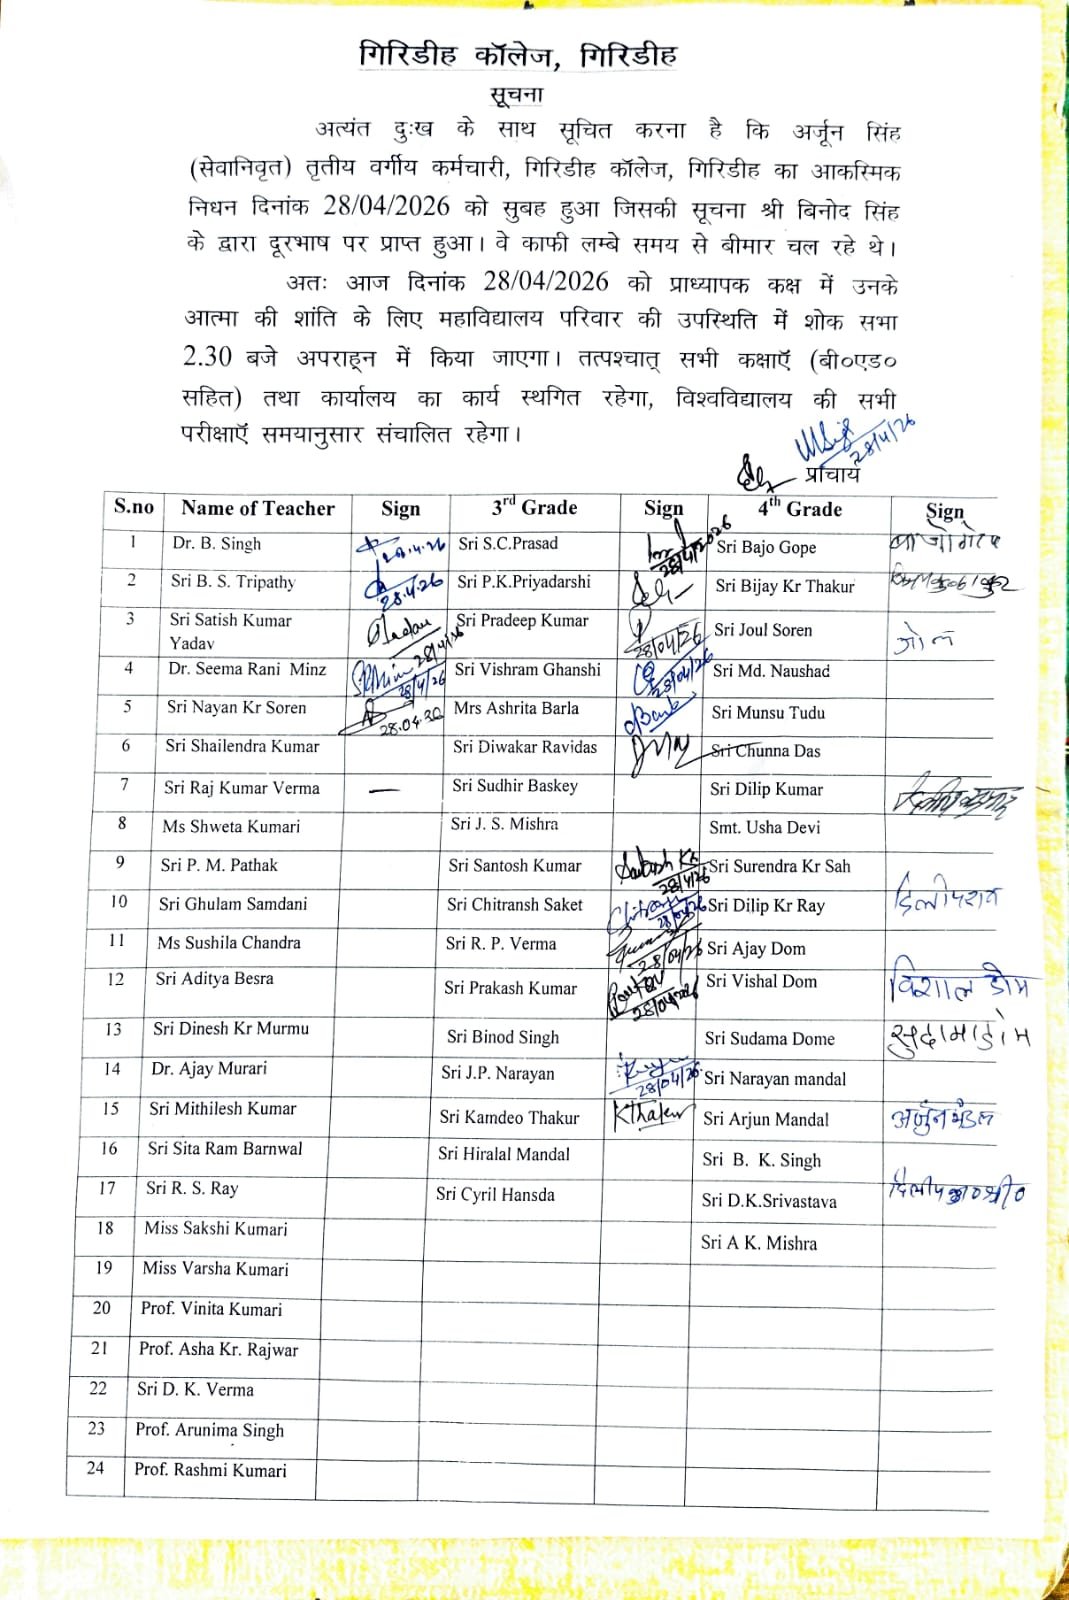 गिरिडीह कॉलेज, गिरिडीह
सूचना
अत्यंत दुःख के साथ सूचित करना है कि अर्जून सिंह
(सेवानिवृत) तृतीय वर्गीय कर्मचारी, गिरिडीह कॉलेज, गिरिडीह का आकस्मिक
निधन दिनांक 28/04/2026 को सुबह हुआ जिसकी सूचना श्री बिनोद सिंह
के द्वारा दूरभाष पर प्राप्त हुआ। वे काफी लम्बे समय से बीमार चल रहे थे।
अतः आज दिनांक 28/04/2026 को प्राध्यापक कक्ष में उनके
आत्मा की शांति के लिए महाविद्यालय परिवार की उपस्थिति में शोक सभा
2.30 बजे अपराह्न में किया जाएगा। तत्पश्चात् सभी कक्षाएँ (बी०एड०
सहित) तथा कार्यालय का कार्य स्थगित रहेगा, विश्वविद्यालय की सभी
परीक्षाएँ समयानुसार संचालित रहेगा।
28/4/26
प्राचार्य
S.no Name of Teacher Sign 3rd Grade Sign 4th Grade Sign
1 Dr. B. Singh 28.4.26 Sri S.C.Prasad 28/4/2026 Sri Bajo Gope बाजो गोप
2 Sri B. S. Tripathy 28.4.26 Sri P.K.Priyadarshi Sri Bijay Kr Thakur
3 Sri Satish Kumar Yadav 28/4/26 Sri Pradeep Kumar 28/04/26 Sri Joul Soren जोल
4 Dr. Seema Rani Minz 28/4/26 Sri Vishram Ghanshi 28/04/26 Sri Md. Naushad
5 Sri Nayan Kr Soren 28.04.26 Mrs Ashrita Barla Sri Munsu Tudu
6 Sri Shailendra Kumar Sri Diwakar Ravidas Sri Chunna Das
7 Sri Raj Kumar Verma — Sri Sudhir Baskey Sri Dilip Kumar
8 Ms Shweta Kumari Sri J. S. Mishra Smt. Usha Devi
9 Sri P. M. Pathak Sri Santosh Kumar Santosh Kr 28/4/26 Sri Surendra Kr Sah
10 Sri Ghulam Samdani Sri Chitransh Saket 28/04/26 Sri Dilip Kr Ray दिलीप राय
11 Ms Sushila Chandra Sri R. P. Verma 28/04/26 Sri Ajay Dom
12 Sri Aditya Besra Sri Prakash Kumar 28/04/2026 Sri Vishal Dom विशाल डोम
13 Sri Dinesh Kr Murmu Sri Binod Singh Sri Sudama Dome सुदामा डोम
14 Dr. Ajay Murari Sri J.P. Narayan 28/04/26 Sri Narayan mandal
15 Sri Mithilesh Kumar Sri Kamdeo Thakur KThakur Sri Arjun Mandal अर्जुन मंडल
16 Sri Sita Ram Barnwal Sri Hiralal Mandal Sri B. K. Singh
17 Sri R. S. Ray Sri Cyril Hansda Sri D.K.Srivastava
18 Miss Sakshi Kumari Sri A K. Mishra
19 Miss Varsha Kumari
20 Prof. Vinita Kumari
21 Prof. Asha Kr. Rajwar
22 Sri D. K. Verma
23 Prof. Arunima Singh
24 Prof. Rashmi Kumari